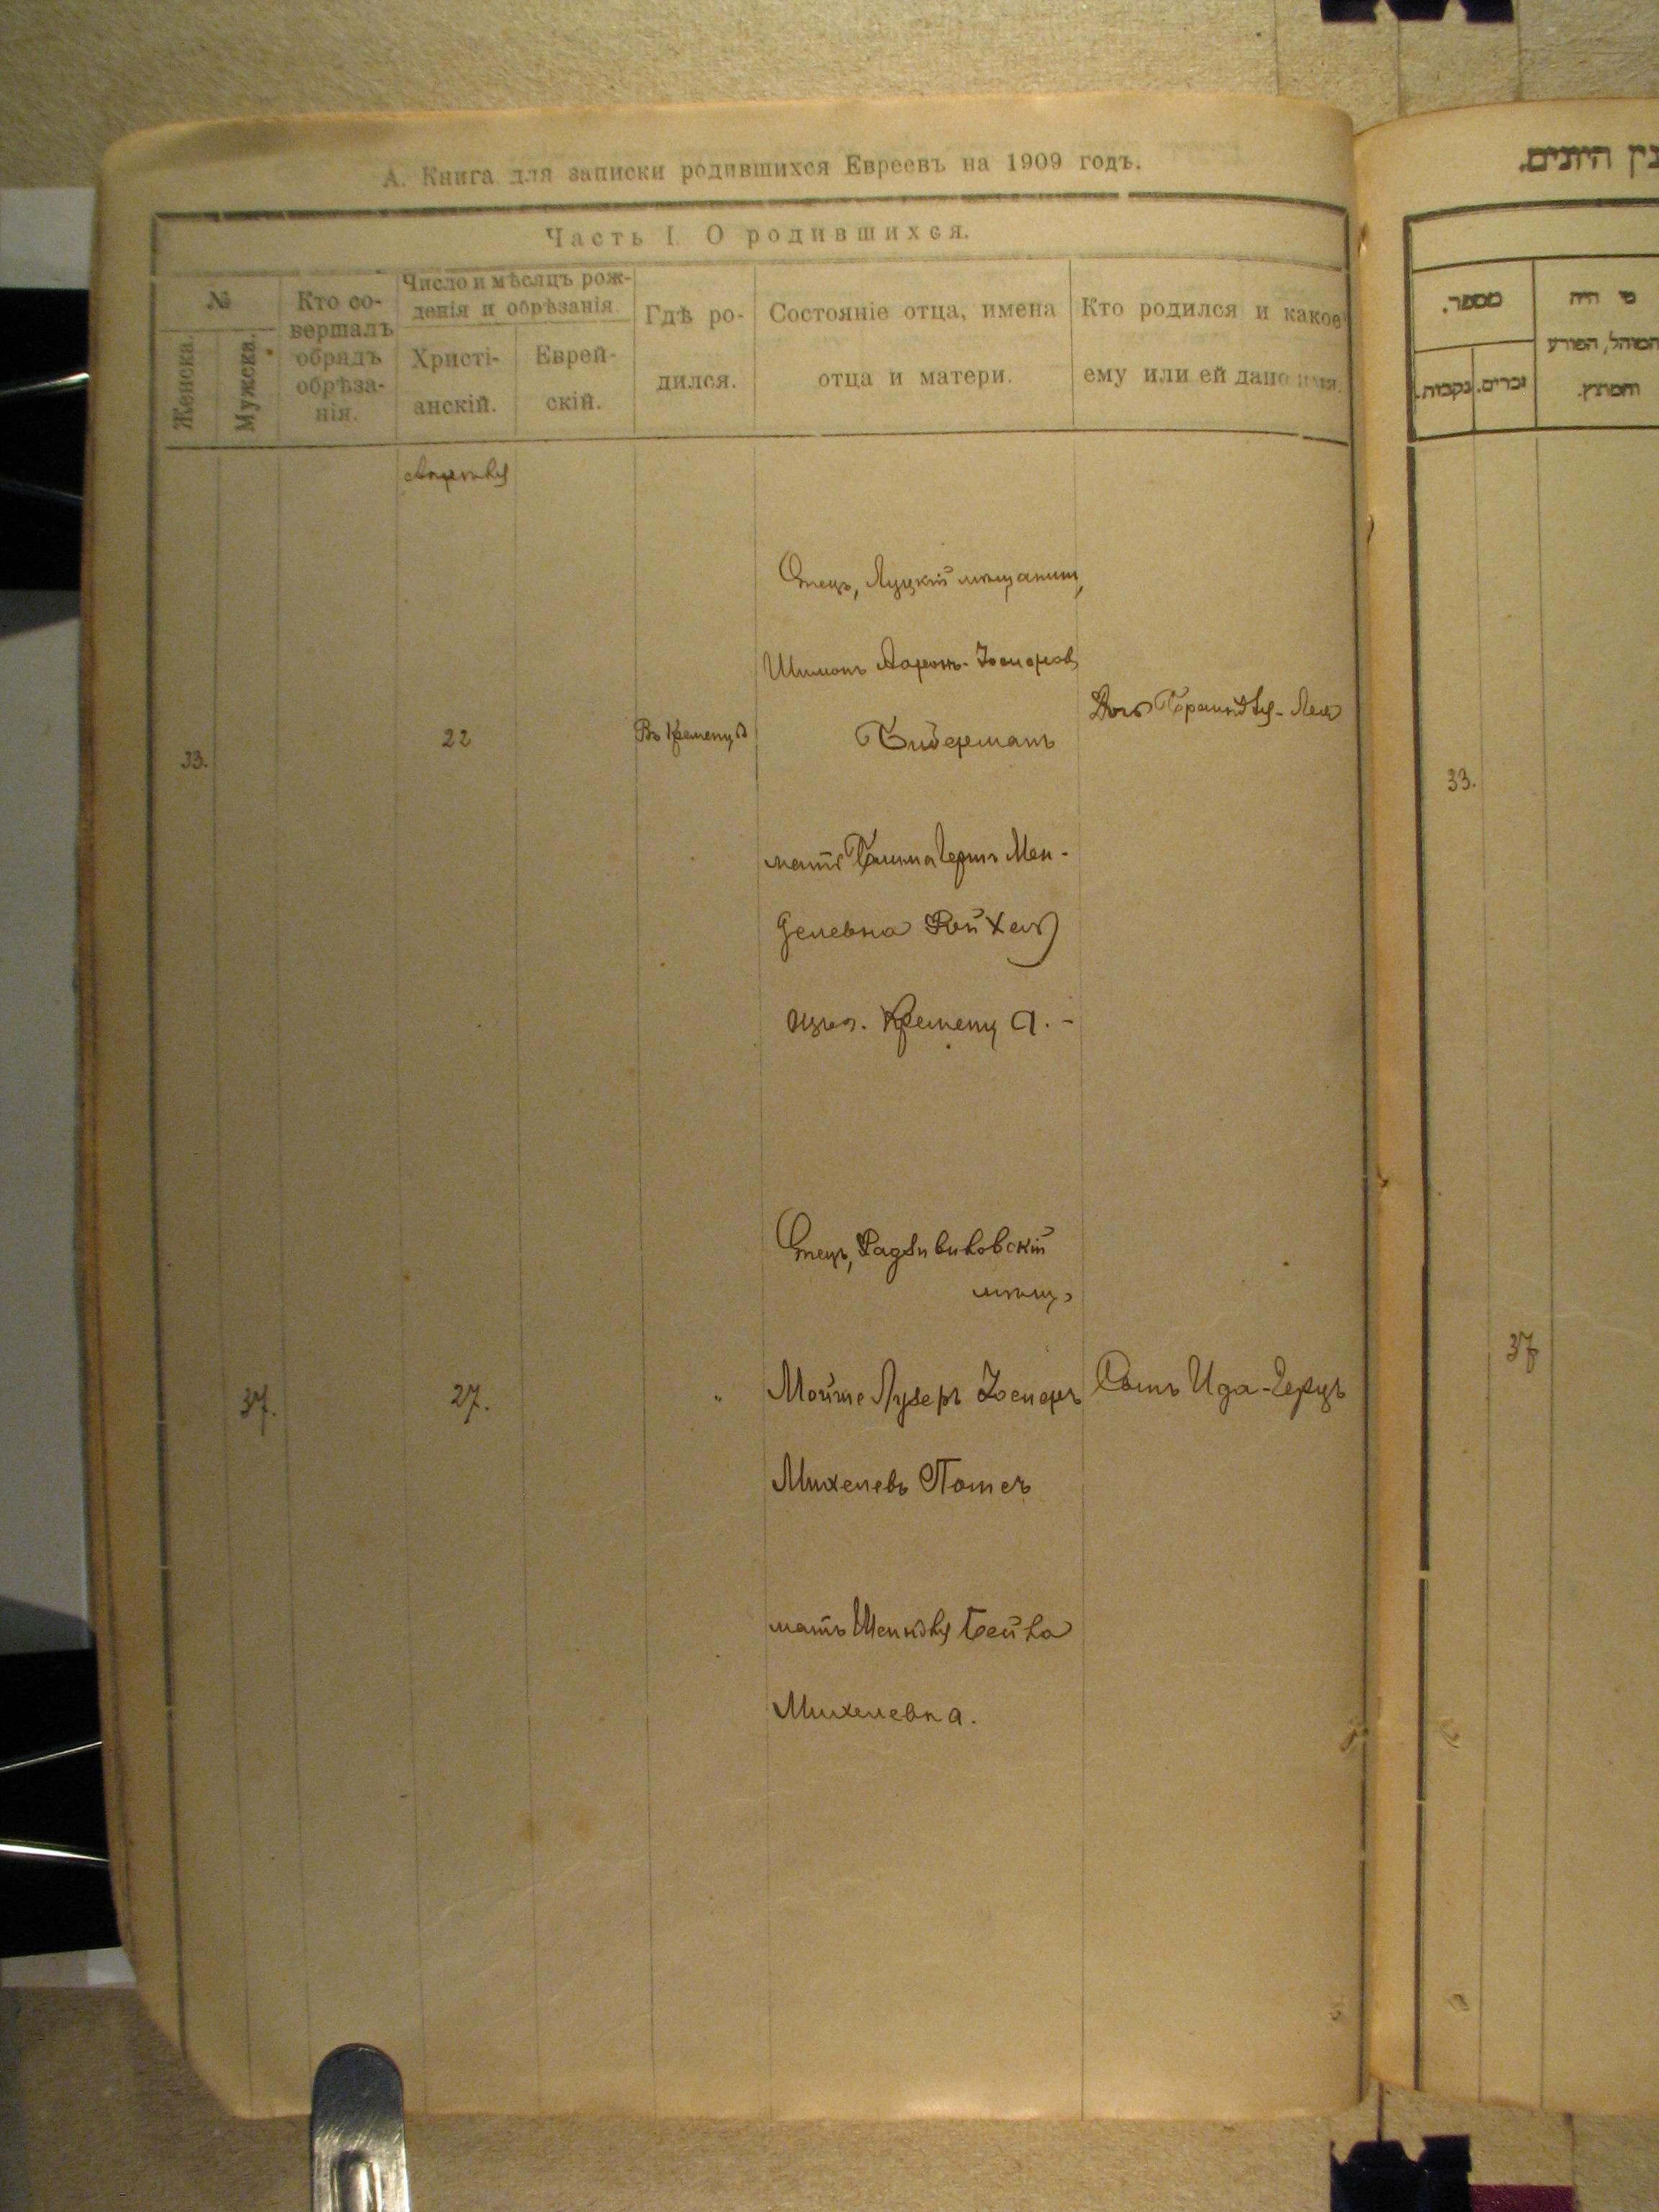 А. Книга для записки родившихся Евреевъ на 1909 годъ.
Часть I. О родившихся.
№
Женска.
Мужска.
Кто со-
вершалъ
обрядъ
обрѣза-
нія.
Число и мѣсяцъ рож-
денія и обрѣзанія.
Христі-
анскій.
Еврей-
скій.
Гдѣ ро-
дился.
Состояніе отца, имена
отца и матери.
Кто родился и какое
ему или ей дано имя.
Апрѣля
33.
22
Въ Кременцѣ
Отецъ, Луцкій мѣщанин,
Шимонъ Ааронъ-Іосифов
Бидерманъ
мать
Мен-
делевна Ройхель
изъ г. Кременца.-
Дочь Брайндля-Лея
37.
27.
"
Отецъ, Радзивиловскій
мѣщ.
Мойше Лузеръ Іосифъ
Михелевъ
мать Шейндля Бейла
Михелевна.
Сынъ Ида-Герцъ
מספר.
נקבות.
זכרים.
מי היה
המוהל, הפורע
והמוצץ.
33.
37